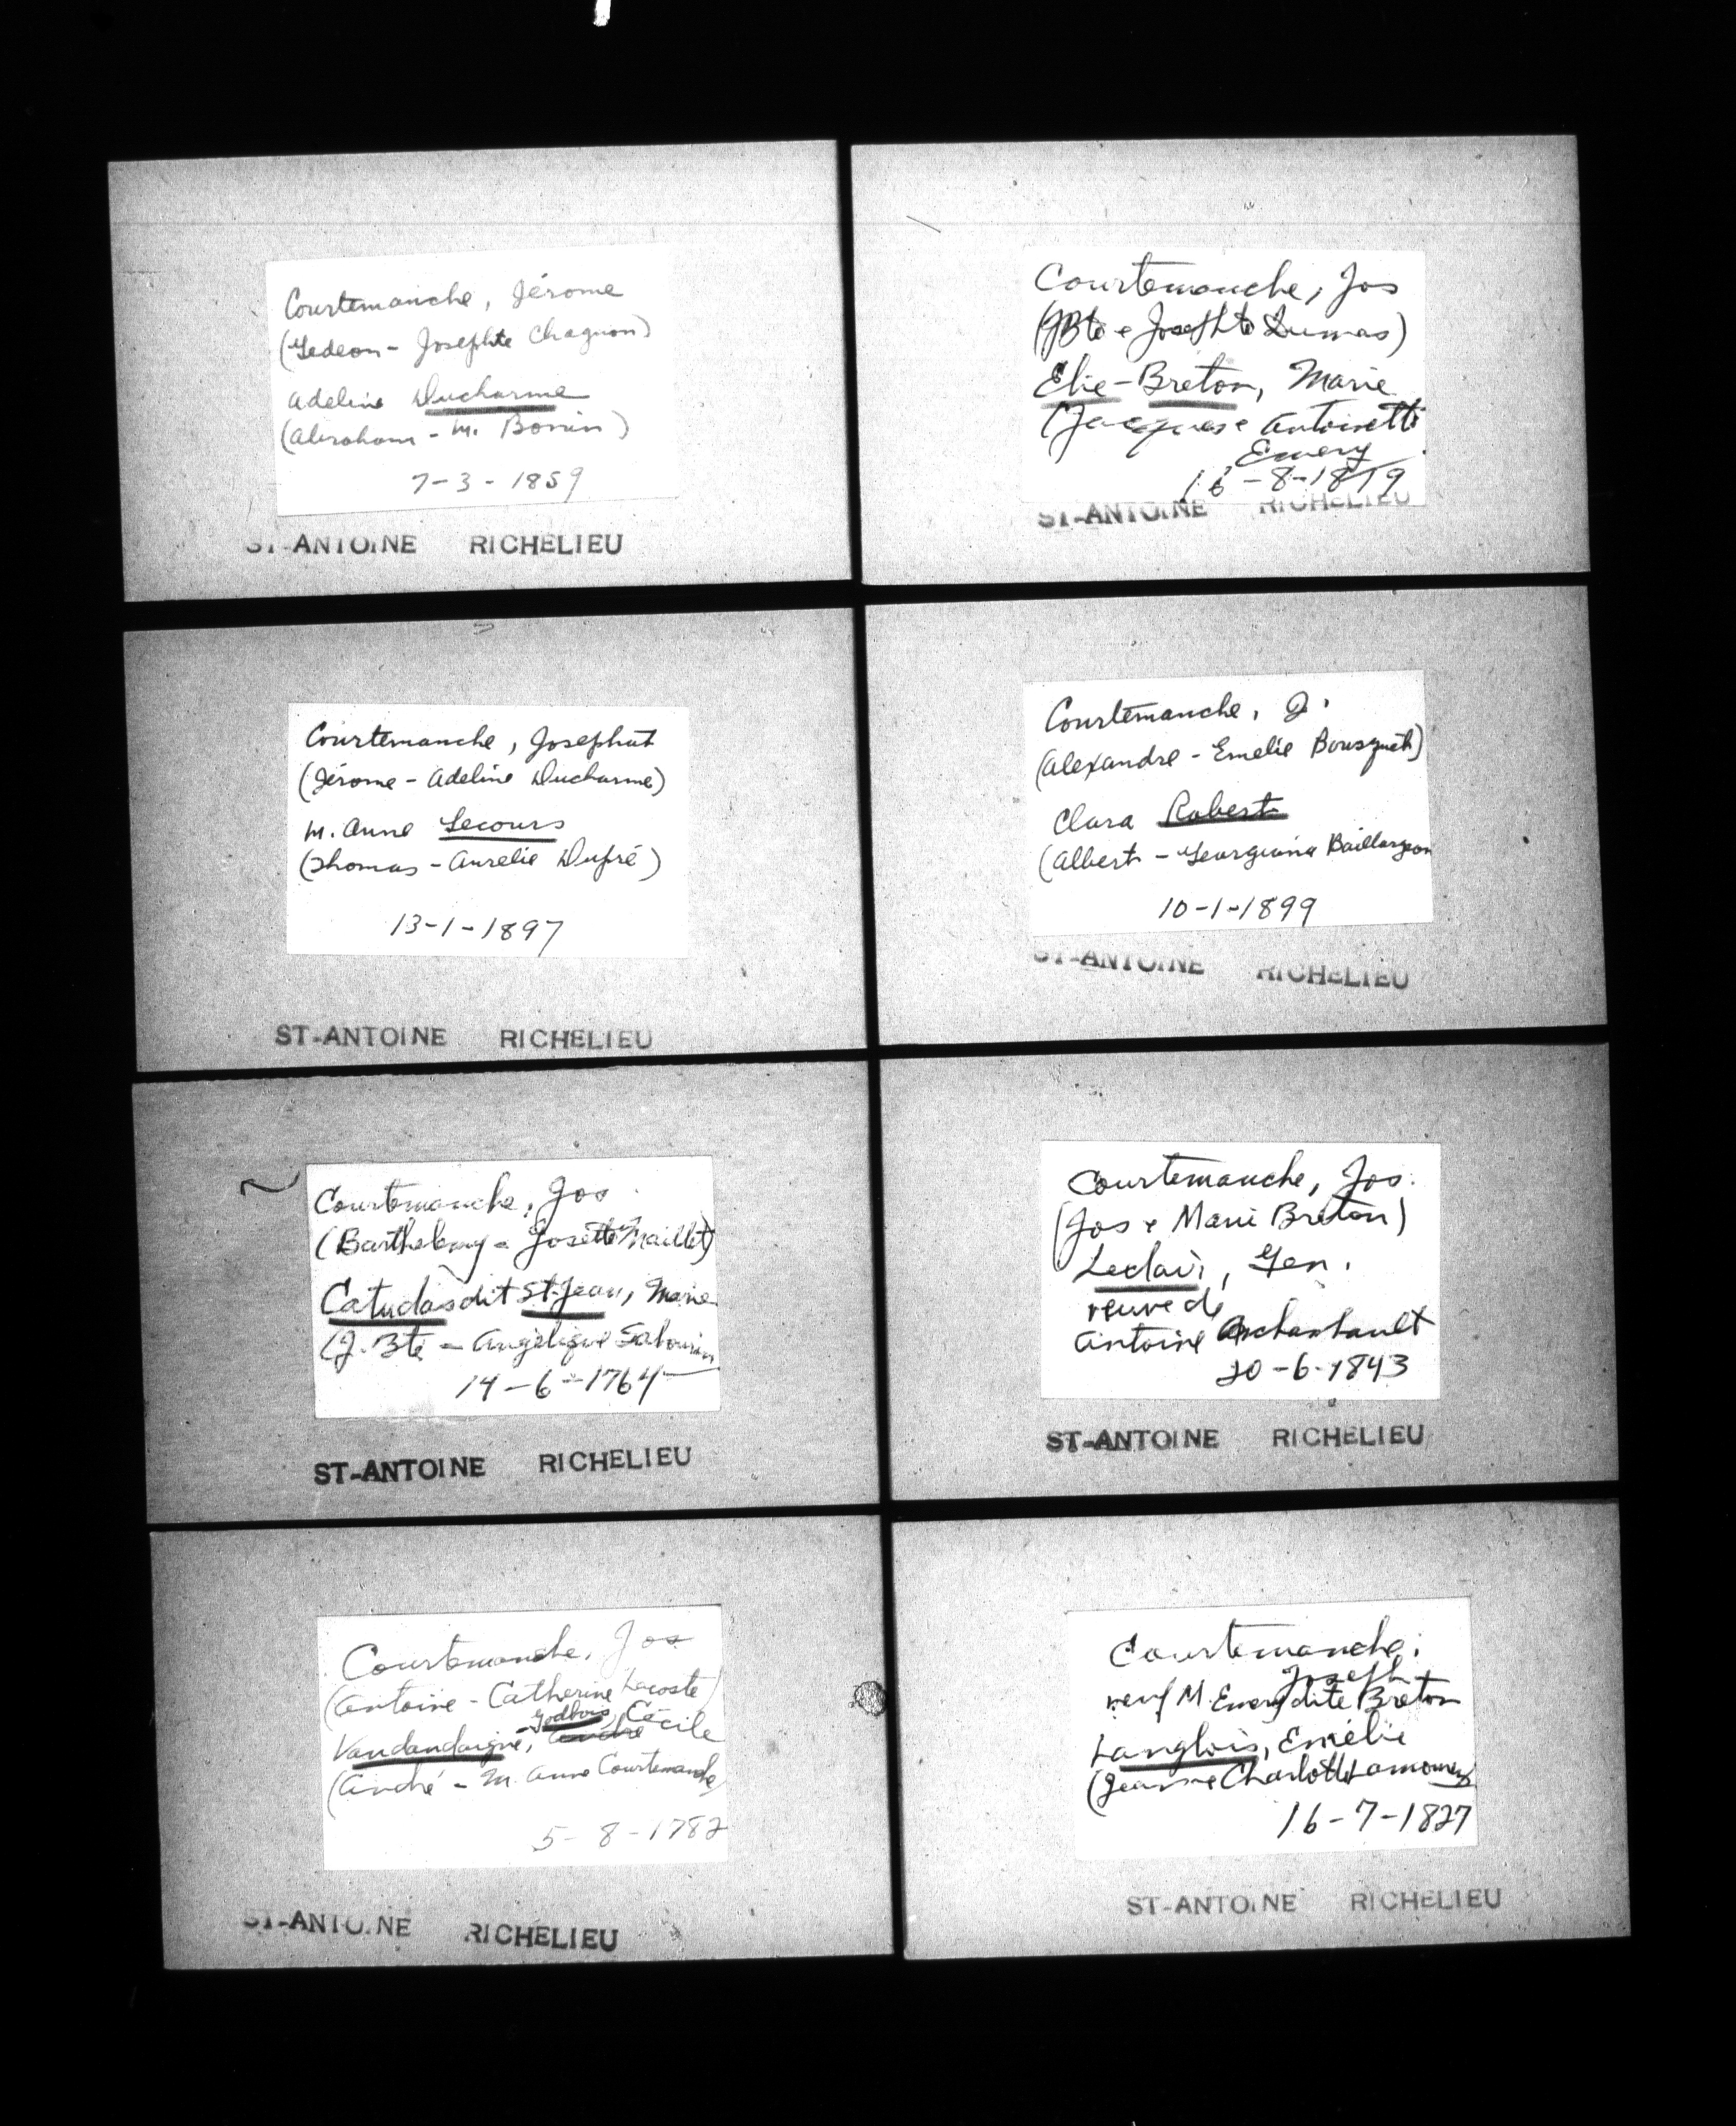 Courtemanche, Jérome
(Gedeon - Josephte Chagnon)
Adeline Ducharme
(Abraham - M. Bonin)
7-3-1859
ST-ANTOINE RICHELIEU
Courtemanche, Jos
(JBte e Josephte Dumas)
Elie-Breton, Marie
(Jacques e Antoinette
Emery
16-8-1819
ST-ANTOINE RICHELIEU
Courtemanche, Josephat
(Jérome - Adeline Ducharme)
M. Anne Lecours
(Thomas - Aurelie Dupré)
13-1-1897
ST-ANTOINE RICHELIEU
Courtemanche, J.
(Alexandre - Emelie Bousquet)
Clara Robert
(Albert - Georgiana Baillargeon
10-1-1899
ST-ANTOINE RICHELIEU
Courtemanche, Jos
(Barthelemy - Josette Maillet)
Catudas dit St-Jean, Marie
(J. Bte - Angelique Sabourin
14-6-1764
ST-ANTOINE RICHELIEU
Courtemanche, Jos.
(Jos e Marie Breton)
Leclair, Gen.
veuve de
Antoine Archambault
20-6-1843
ST-ANTOINE RICHELIEU
Courtemanche, Jos
(Antoine - Catherine Lacoste)
Vandandaigue, - Godbois, Cécile
(André - M. Anne Courtemanche)
5-8-1782
ST-ANTOINE RICHELIEU
Courtemanche,
Joseph
veuf M. Emery dite Breton
Langlois, Emélie
(Jean e Charlotte Lamoureux
16-7-1827
ST-ANTOINE RICHELIEU